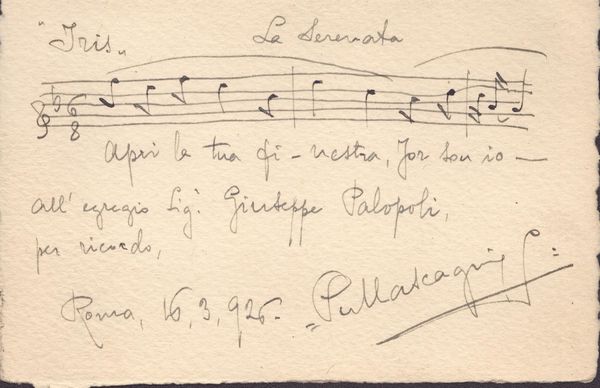 "Iris" La Serenata
6 8
Apri la tua fi-nestra, Jor son io—
all'egregio Sig: Giuseppe Palopoli,
per ricordo,
Roma, 16, 3, 926- "PMascagni"